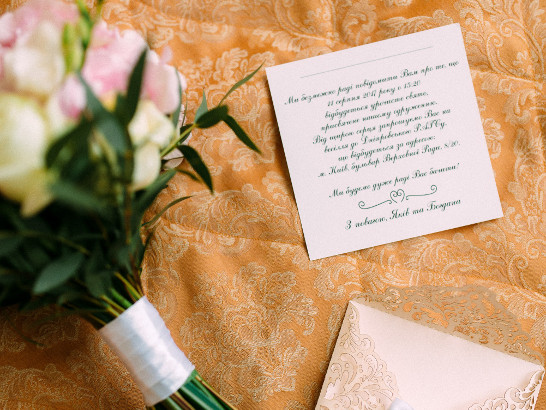 Ми безмежно раді повідомити Вам про те, що
21 серпня 2017 року о 15:20
відбудеться урочисте свято,
присвячене нашому одруженню.
Від щирого серця запрошуємо Вас на
весілля до Дніпровського РАЦСу,
що відбудеться за адресою:
м. Київ, бульвар Верховної Ради, 8/20.
Ми будемо дуже раді Вас бачити!
З повагою, Яків та Богдана